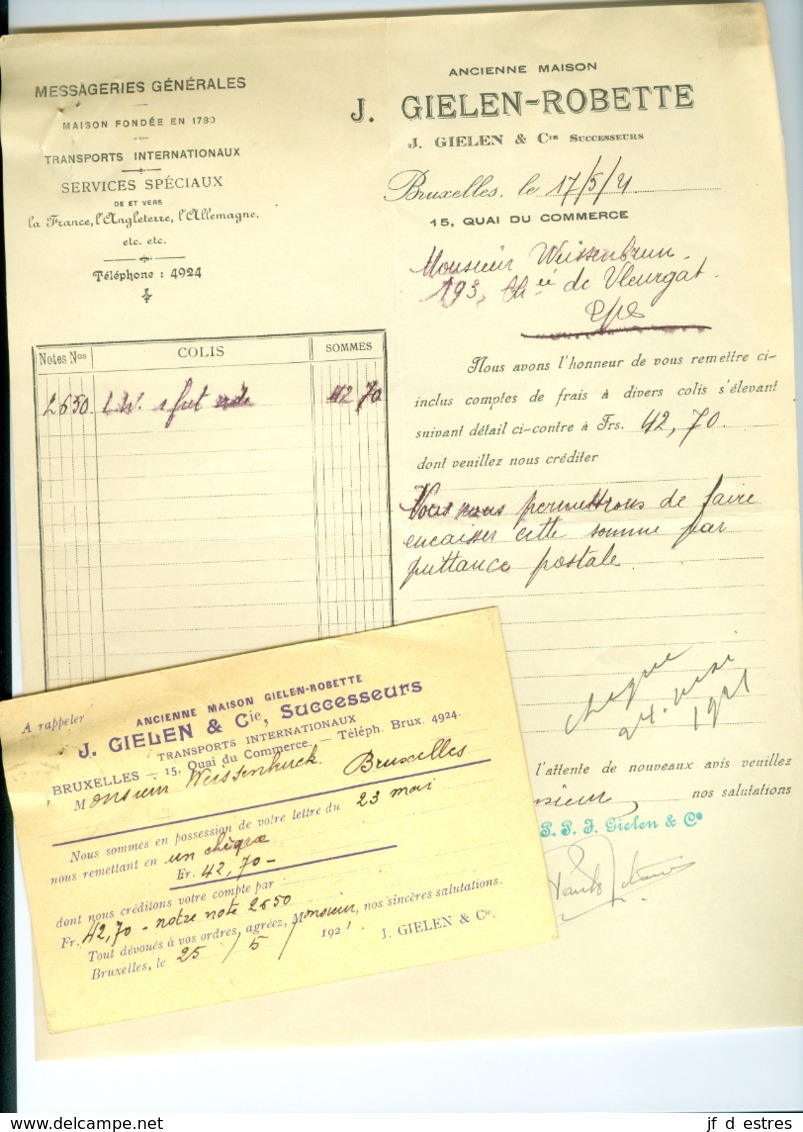 MESSAGERIES GÉNÉRALES
MAISON FONDÉE EN 1780
TRANSPORTS INTERNATIONAUX
SERVICES SPÉCIAUX
DE ET VERS
la France, l'Angleterre, l'Allemagne,
etc. etc.
Téléphone : 4924
ANCIENNE MAISON
J. GIELEN-ROBETTE
J. GIELEN & Cie SUCCESSEURS
Bruxelles, le 17/5/21
15, QUAI DU COMMERCE
Monsieur Weissenbrun
193, Chée de Vleurgat.
Notes Nos COLIS SOMMES
2650 L.W. 1 fut vide 42 70
Nous avons l'honneur de vous remettre ci-
inclus comptes de frais à divers colis s'élevant
suivant détail ci-contre à Frs. 42,70.
dont veuillez nous créditer
Vous nous permettrons de faire
encaisser cette somme par
quittance postale.
chèque
24. mai
1921
l'attente de nouveaux avis veuillez
nsieur, nos salutations
P. P. J. Gielen & Co
A rappeler
ANCIENNE MAISON GIELEN-ROBETTE
J. GIELEN & Cie, Successeurs
TRANSPORTS INTERNATIONAUX
BRUXELLES — 15, Quai du Commerce. — Téléph. Brux. 4924.
Monsieur Weissenbruck Bruxelles
Nous sommes en possession de votre lettre du 23 mai
nous remettant en un chèque
Fr. 42,70 -
dont nous créditons votre compte par
Fr. 42,70 - notre note 2650
Tout dévoués à vos ordres, agréez, Monsieur, nos sincères salutations.
Bruxelles, le 25 / 5 / 1921 J. GIELEN & Cie.
jf d estres